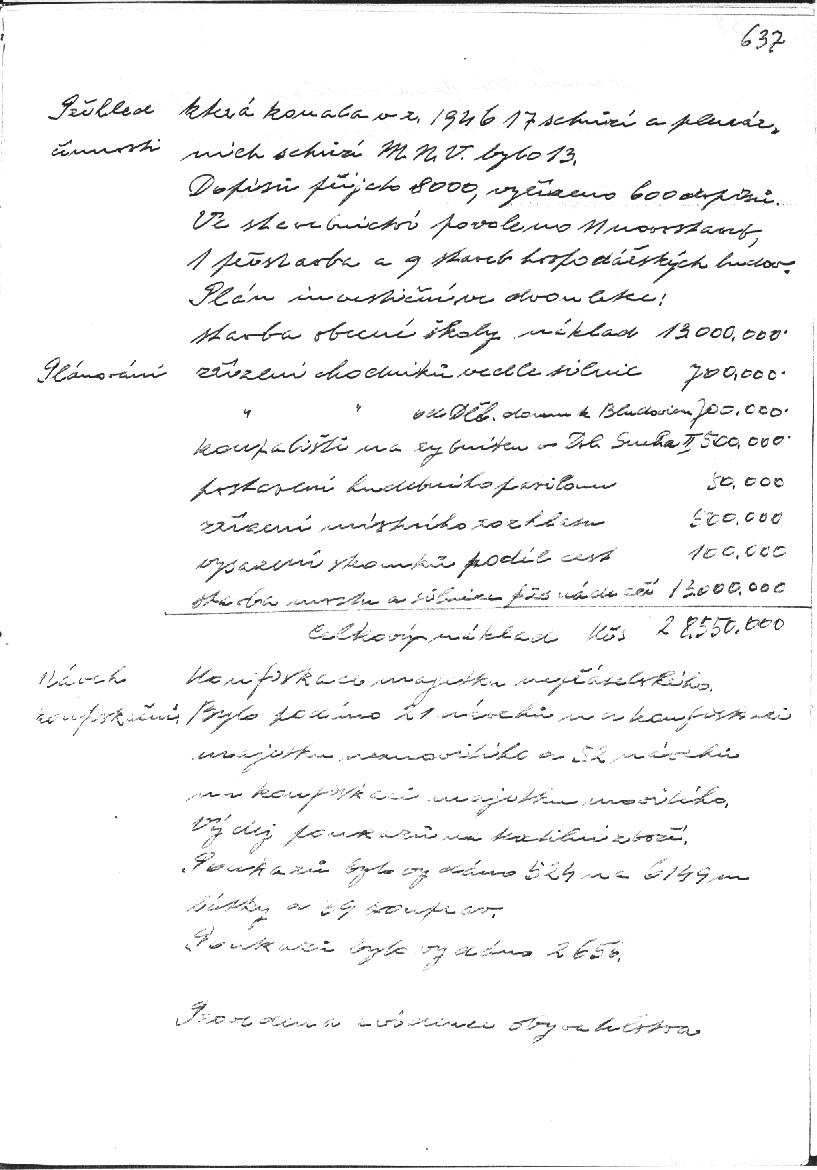 637
Přehled která konala v r. 1946 17 schůzí a plenár-
činnosti ních schůzí M.N.V. bylo 13.
Dopisů přijato 8000, vyřízeno 600 dopisů.
Ve stavebnictví povoleno 11 novostaveb,
1 přístavba a 9 staveb hospodářských budov.
Plán investiční ve dvouletce:
stavba obecné školy náklad 13 000,000.
Plánování zřízení chodníků vedle silnic 700,000.
" " od Děl. domu k Bludovicím 700.000.
koupaliště na rybníku v Dol. Suché II 500,000.
postavení hudebního pavilonu 50,000
zřízení místního rozhlasu 500,000
vysazení stromků podél cest 100,000
stavba mostu a silnice přes nádraží 13000,000
Celkový náklad Kčs 28,550,000
Návrh Konfiskace majetku nepřátelského.
konfiskační. Bylo podáno 21 návrhů na konfiskaci
majetku nemovitého a 52 návrhů
na konfiskaci majetku movitého.
Výdej poukazů na textilní zboží.
Poukazů bylo vydáno 524 na 6149 m
látky a 39 souprav.
Poukazů bylo vydáno 2656.
Provedena evidence obyvatelstva